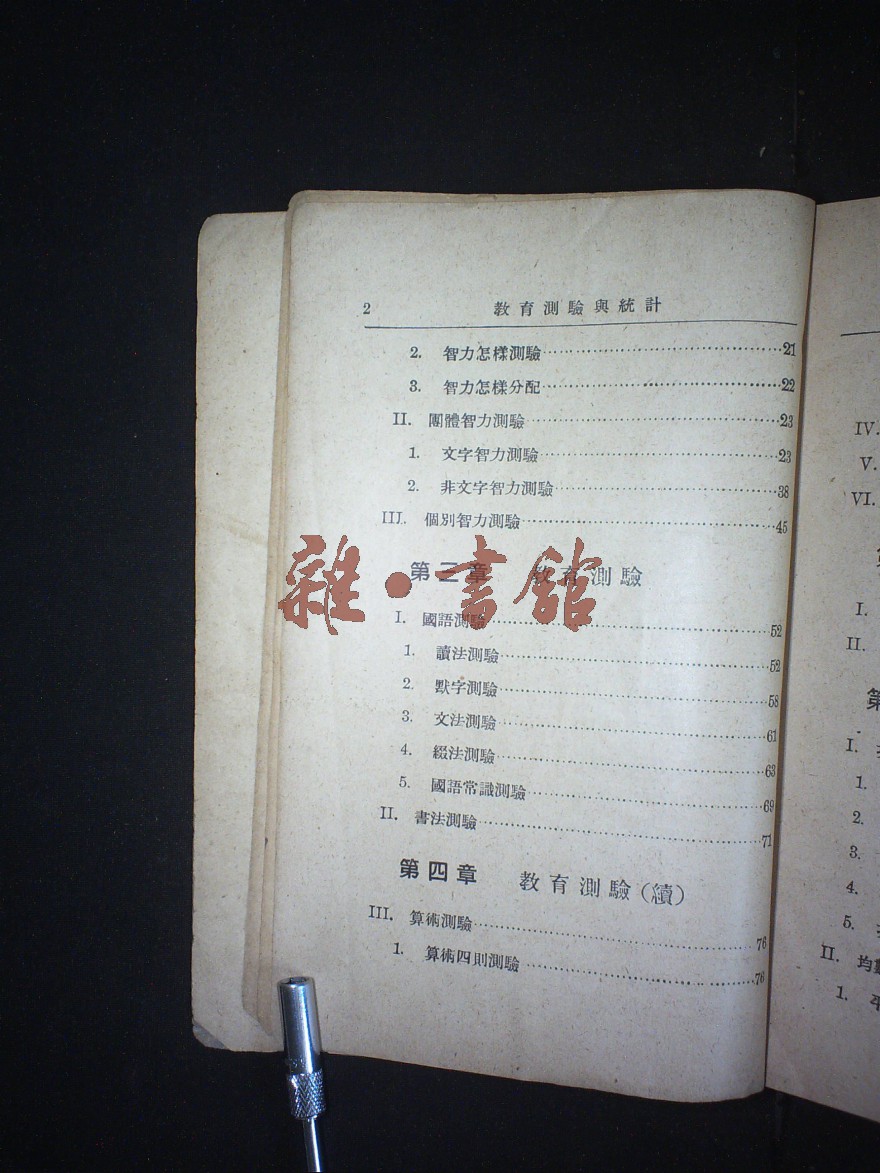 2 教育測驗與統計
2. 智力怎樣測驗……21
3. 智力怎樣分配……22
II. 團體智力測驗……23
1. 文字智力測驗……23
2. 非文字智力測驗……38
III. 個別智力測驗……45
第三章 教育測驗
I. 國語測驗……52
1. 讀法測驗……52
2. 默字測驗……58
3. 文法測驗……61
4. 綴法測驗……63
5. 國語常識測驗……69
II. 書法測驗……71
第四章 教育測驗(續)
III. 算術測驗……76
1. 算術四則測驗……76
雜·書館
IV.
V.
VI.
I.
II.
第
I.
1.
2.
3.
4.
5.
II. 均
1. 平